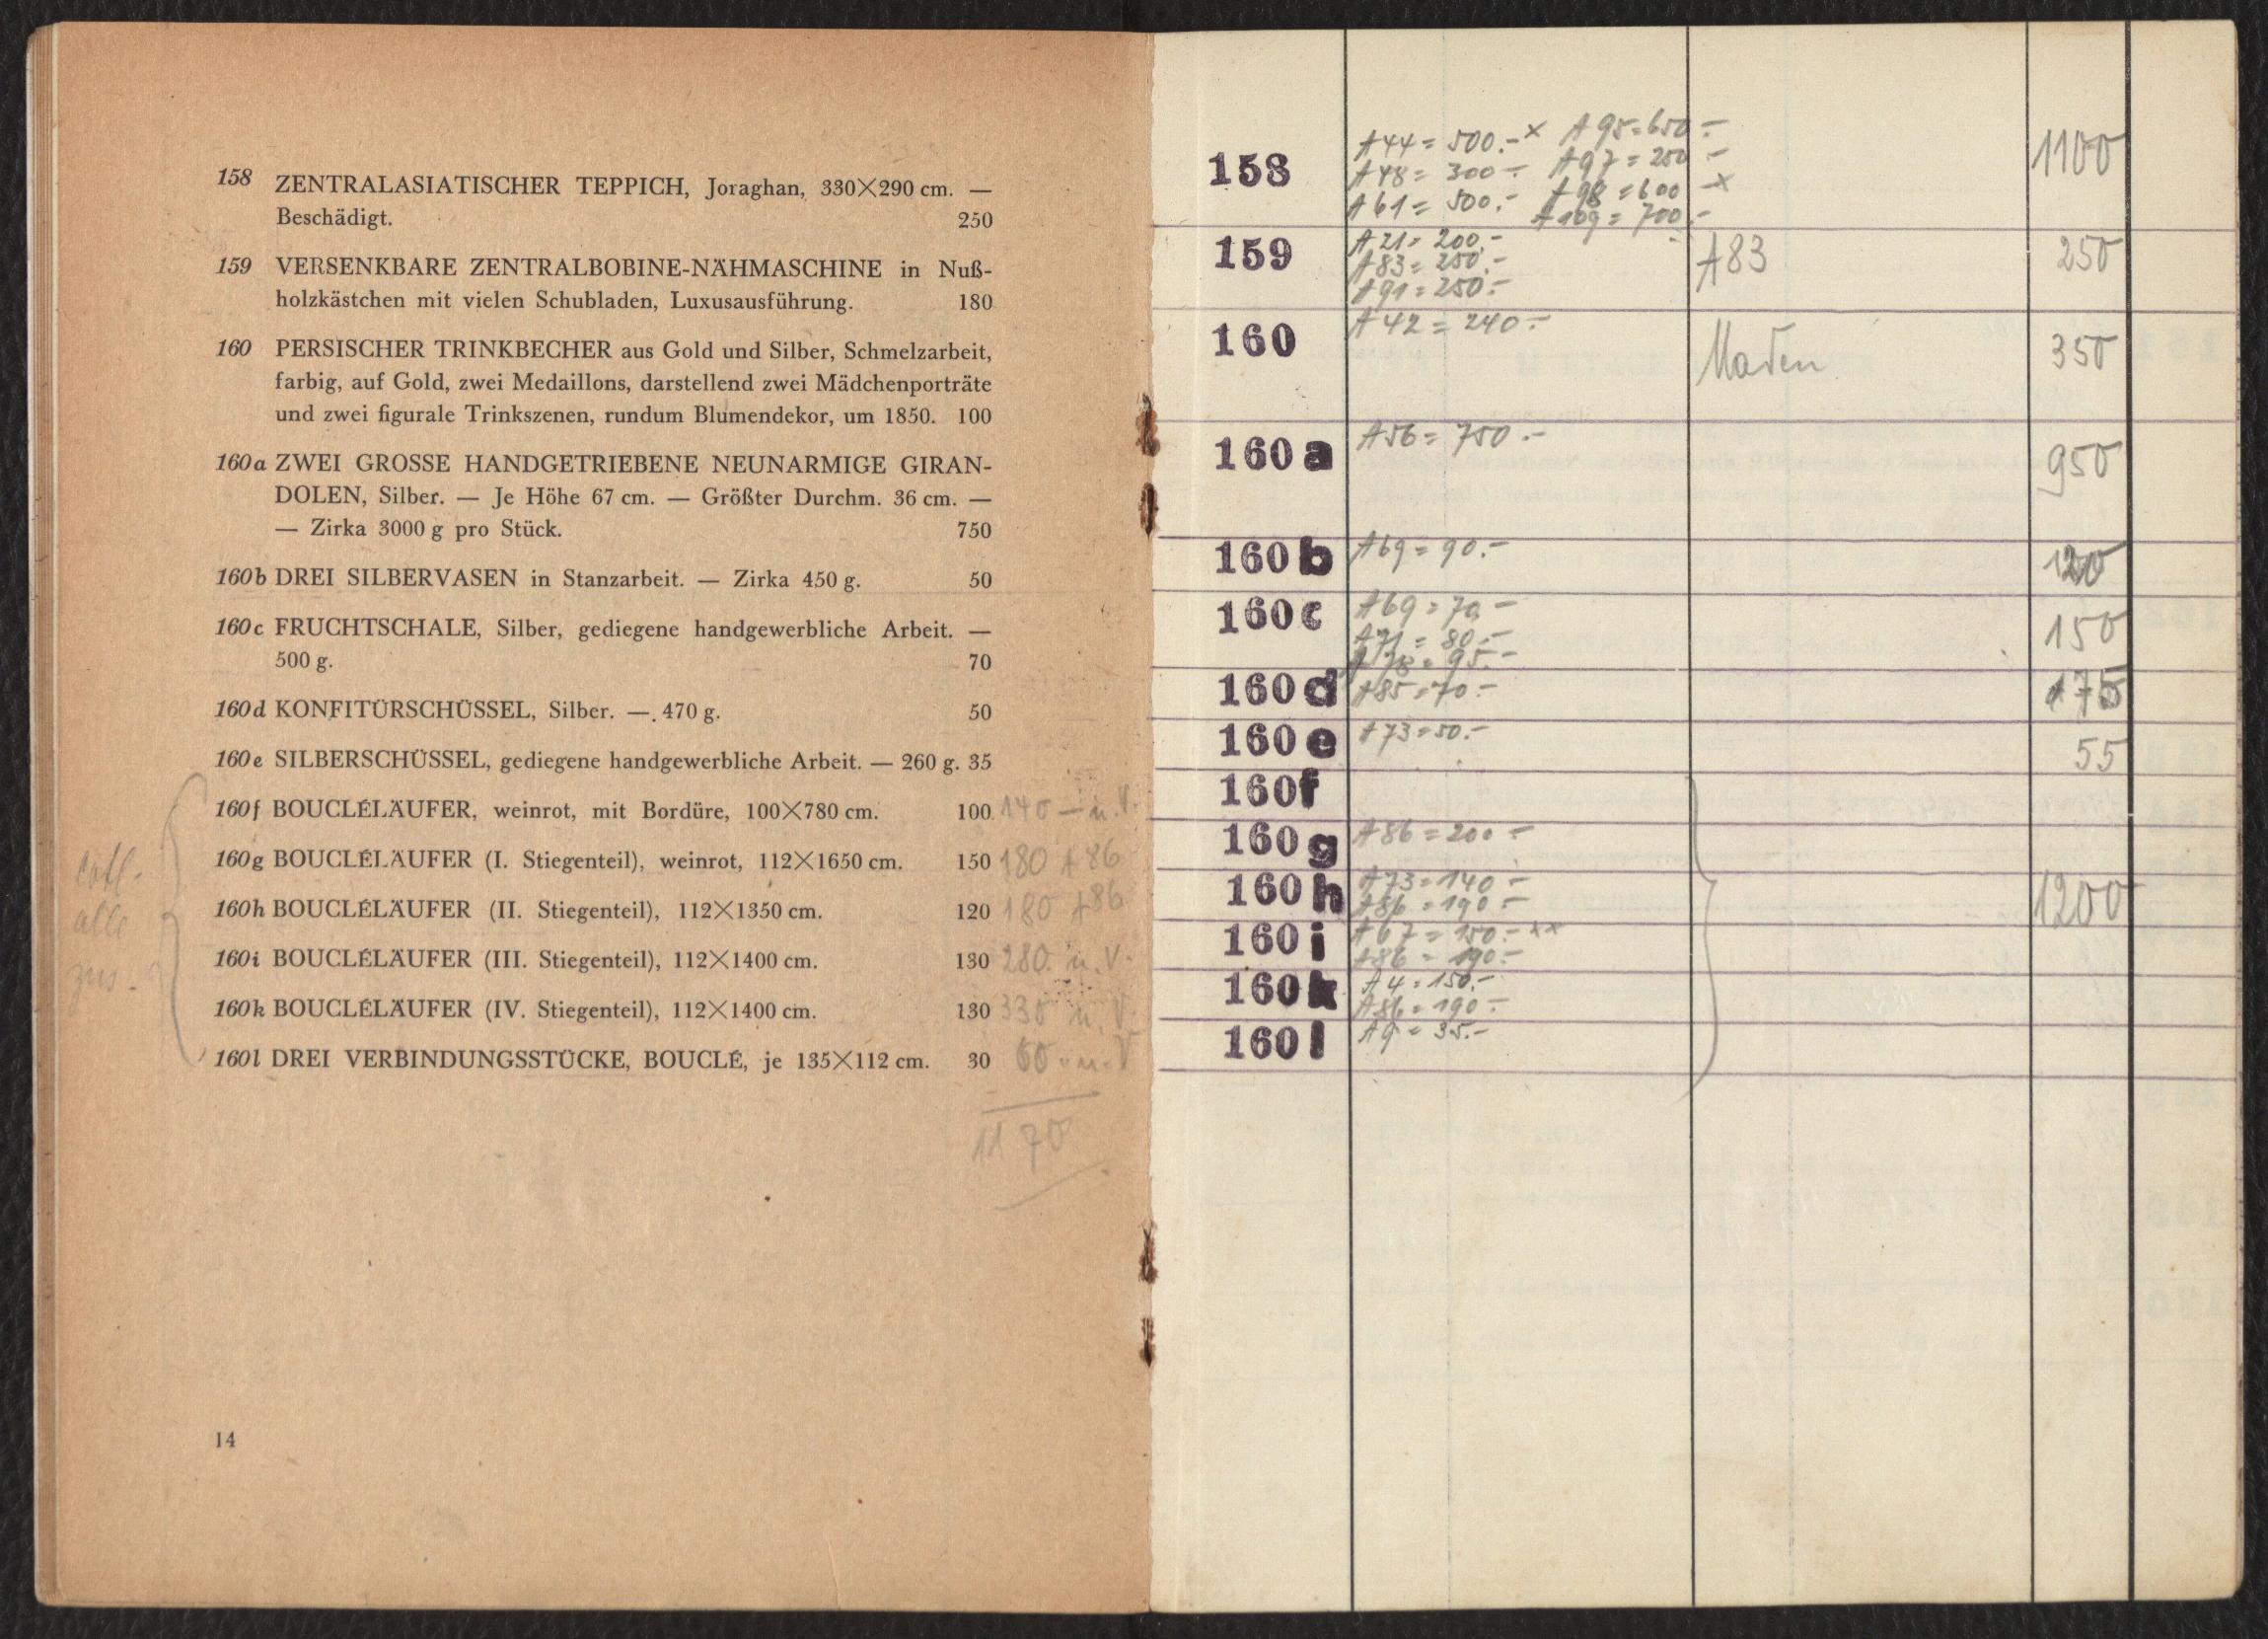 158 ZENTRALASIATISCHER TEPPICH, Joraghan, 330×290 cm. —
Beschädigt. 250
159 VERSENKBARE ZENTRALBOBINE-NÄHMASCHINE in Nuß-
holzkästchen mit vielen Schubladen, Luxusausführung. 180
160 PERSISCHER TRINKBECHER aus Gold und Silber, Schmelzarbeit,
farbig, auf Gold, zwei Medaillons, darstellend zwei Mädchenporträte
und zwei figurale Trinkszenen, rundum Blumendekor, um 1850. 100
160a ZWEI GROSSE HANDGETRIEBENE NEUNARMIGE GIRAN-
DOLEN, Silber. — Je Höhe 67 cm. — Größter Durchm. 36 cm. —
— Zirka 3000 g pro Stück. 750
160b DREI SILBERVASEN in Stanzarbeit. — Zirka 450 g. 50
160c FRUCHTSCHALE, Silber, gediegene handgewerbliche Arbeit. —
500 g. 70
160d KONFITÜRSCHÜSSEL, Silber. — 470 g. 50
160e SILBERSCHÜSSEL, gediegene handgewerbliche Arbeit. — 260 g. 35
160f BOUCLÉLÄUFER, weinrot, mit Bordüre, 100×780 cm. 100 140 — u. V.
160g BOUCLÉLÄUFER (I. Stiegenteil), weinrot, 112×1650 cm. 150 180 A 86
160h BOUCLÉLÄUFER (II. Stiegenteil), 112×1350 cm. 120 180 A 86
160i BOUCLÉLÄUFER (III. Stiegenteil), 112×1400 cm. 130 280 u. V.
160k BOUCLÉLÄUFER (IV. Stiegenteil), 112×1400 cm. 130 330 u. V.
160l DREI VERBINDUNGSSTÜCKE, BOUCLÉ, je 135×112 cm. 30 60 u. V
alle
zus.
1170
14
158
A 44 = 500.- x A 95 = 650.-
A 48 = 300.- A 97 = 250.-
A 61 = 500.- A 98 = 600 -x
A 109 = 700.-
1100
159
A 21 = 200.-
A 83 = 250.-
A 91 = 250.-
A 83
250
160
A 42 = 240.-
350
160a
A 56 = 750.-
950
160b
A 69 = 90.-
120
160c
A 69 = 70.-
A 71 = 80.-
A 78 = 95.-
150
160d
A 85 = 70.-
175
160e
A 73 = 50.-
55
160f
160g
A 86 = 200.-
160h
A 73 = 140.-
A 86 = 190.-
1200
160i
A 67 = 150.- xx
A 86 = 190.-
160k
A 4 = 150.-
A 86 = 190.-
160l
A 9 = 35.-